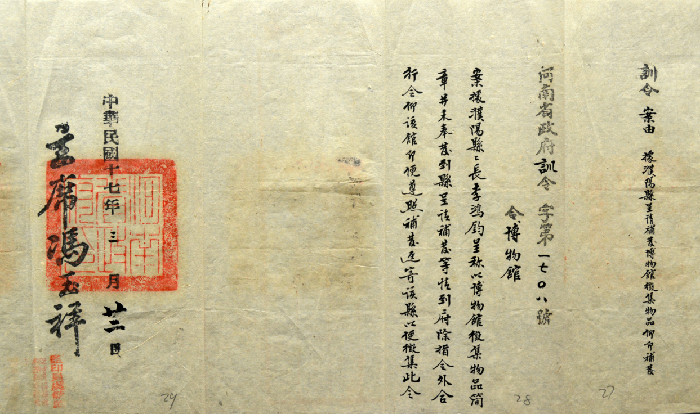 訓令 案由 據濮陽縣呈請補發博物館徵集物品仰即補發
河南省政府訓令 字第一七〇八號
令博物館
案據濮陽縣縣長李鴻鈞呈称以博物館徵集物品簡
章并未奉發到縣呈請補發等情到府除指令外合
行令仰該館即便遵照補發逕寄該縣以便徵集此令
中華民國十七年三月廿二日
主席馮玉祥
27
28
29